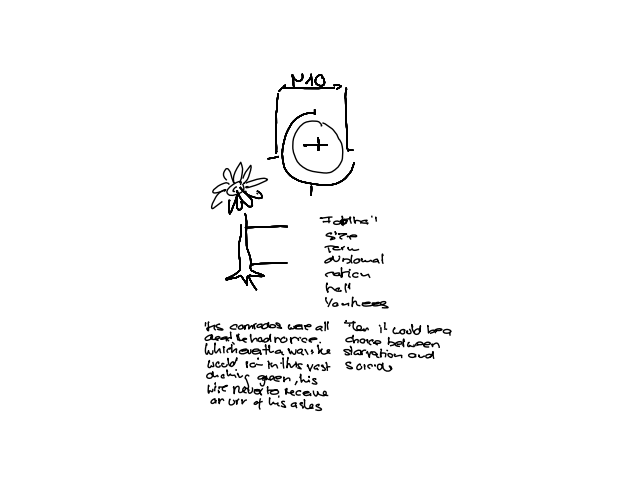 M10
Football
size
term
diplomat
nation
hall
Yankees
His comrades were all
dead he had no rice.
Whichever the was he
would in this vast
choking green, his
wife never to receive
an urn of his ashes
Then it would be a
choice between
starvation and
suicide